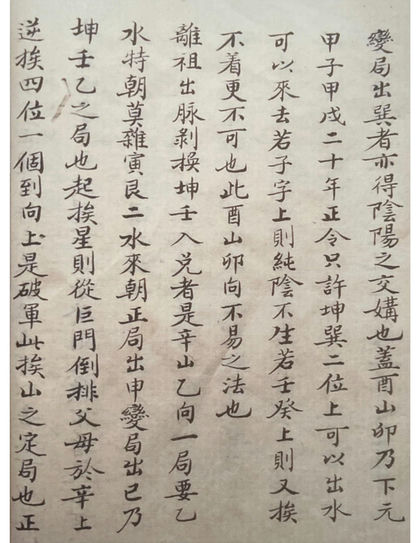 變局出巽者亦得陰陽之交媾也蓋酉山卯乃下元
甲子甲戌二十年正令只許坤巽二位上可以出水
可以來去若子字上則純陰不生若壬癸上則又挨
不着更不可也此酉山卯向不易之法也
離祖出脉剝換坤壬入兌者是辛山乙向一局要乙
水特朝莫雜寅艮二水來朝正局出申變局出巳乃
坤壬乙之局也起挨星則從巨門倒排父母於辛上
逆挨四位一個到向上是破軍此挨山之定局也正